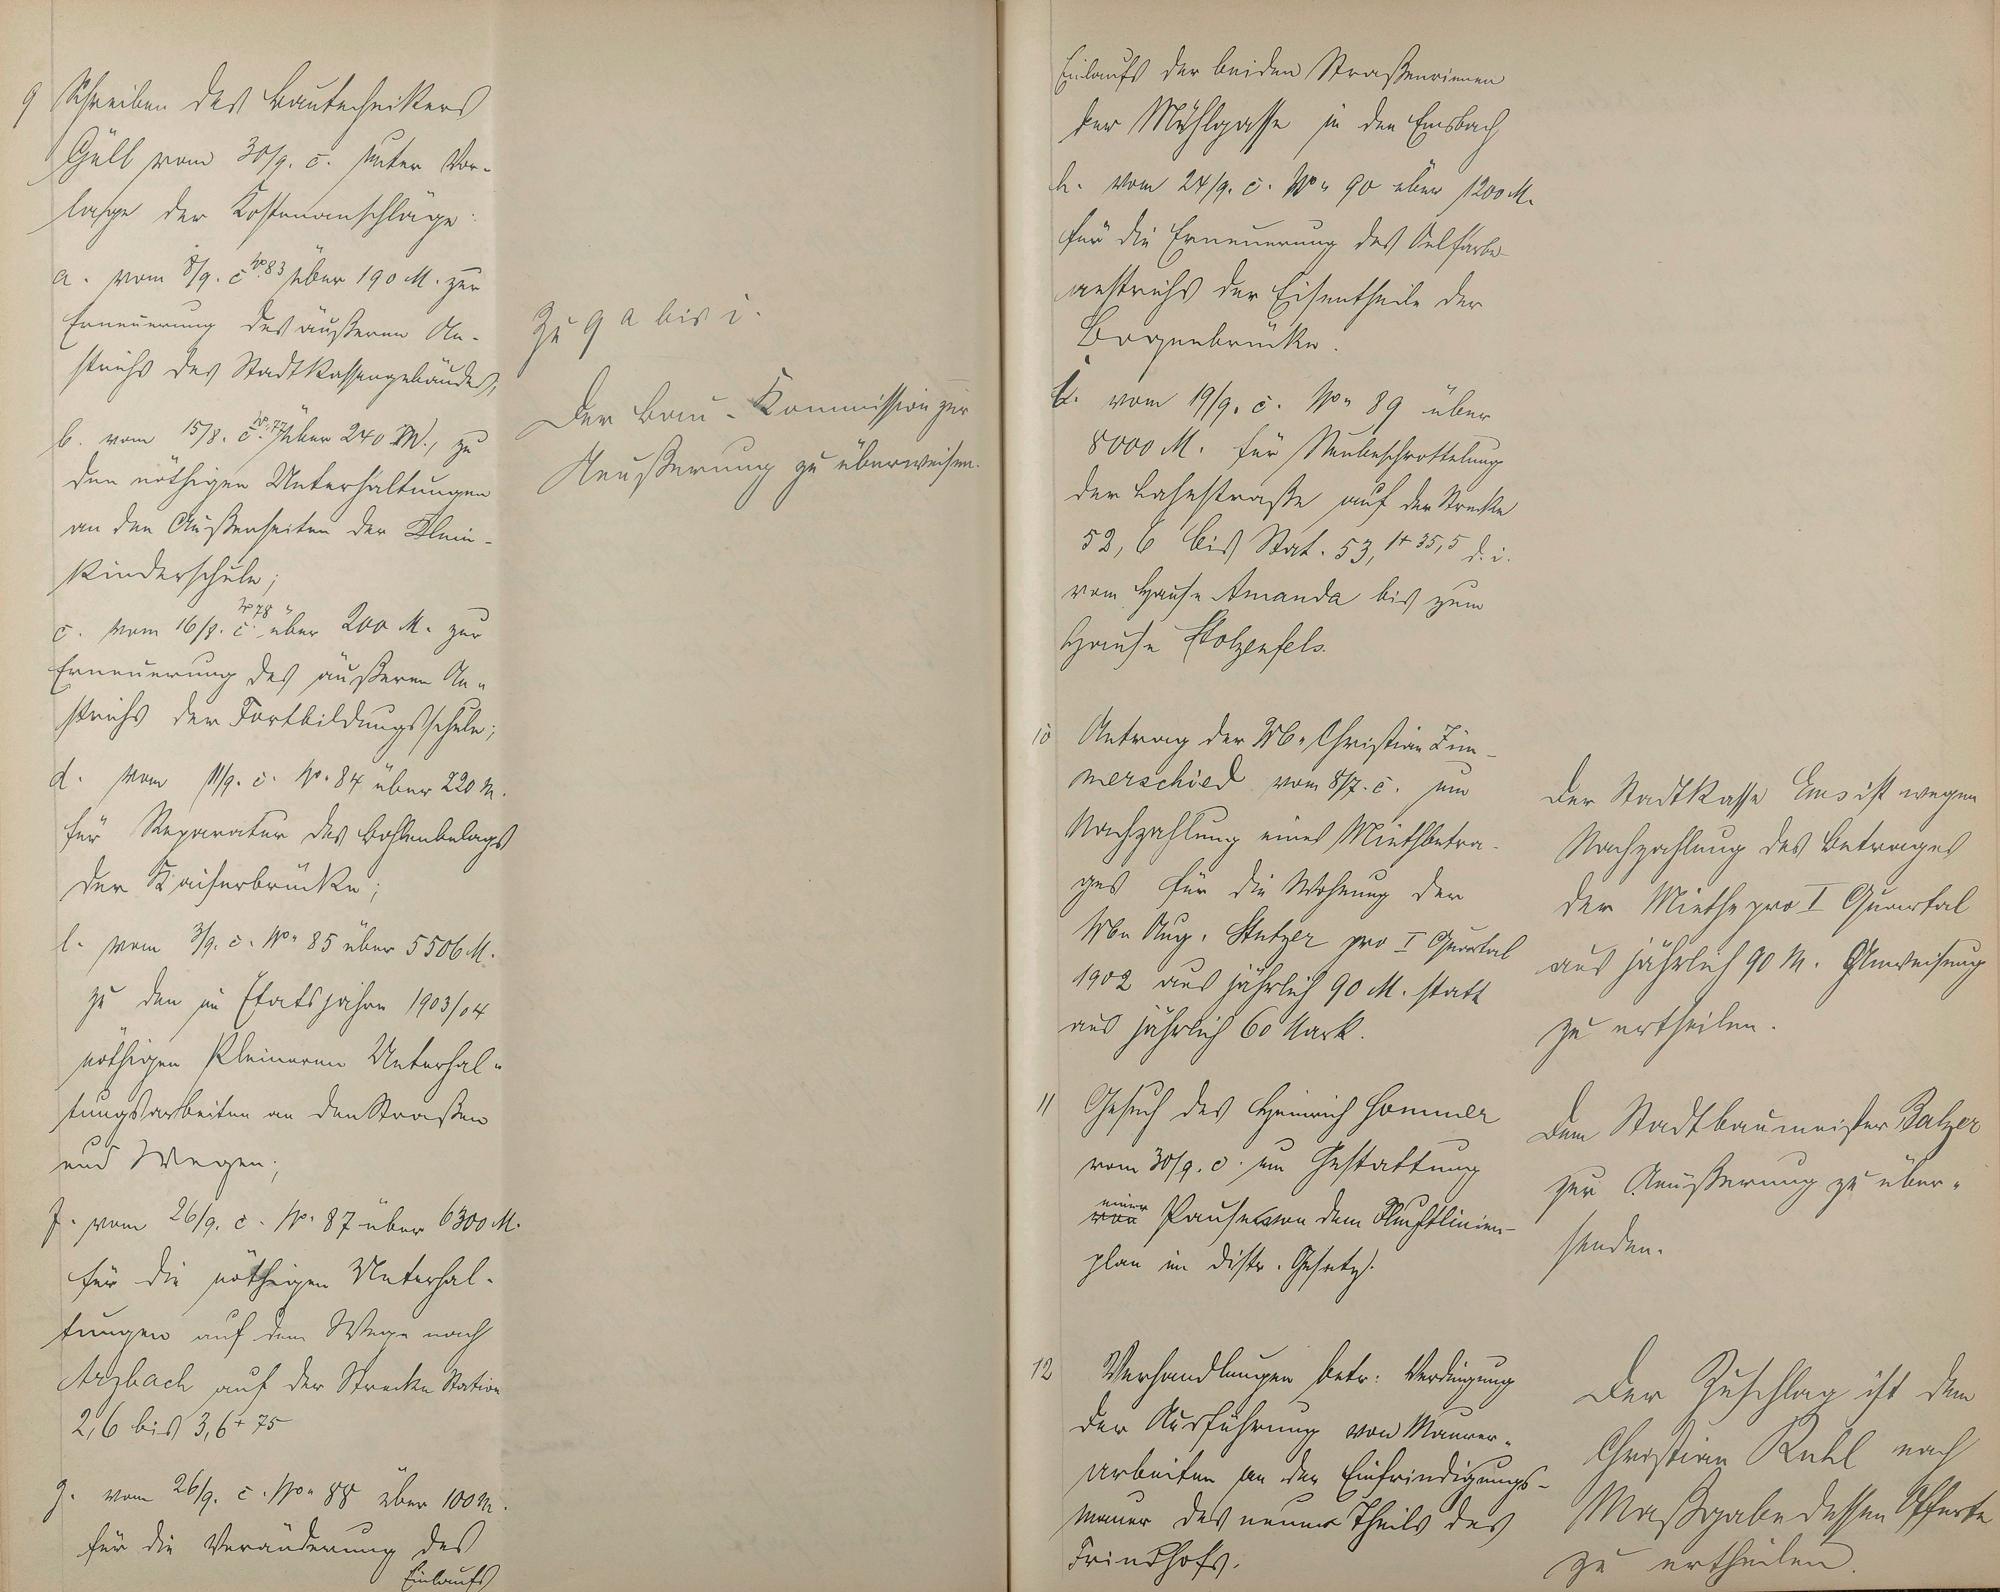 9 Schreiben des Bautechnikers
Güll vom 30/9. c. unter Vor-
lage der Kostenanschläge:
a. vom 8/9. c. No. 83 über 190 M. zur
Erneuerung des äußeren An-
strichs des Stadtkassengebäudes,
b. vom 15/8. c. No. 77 über 240 M., zu
den nöthigen Unterhaltungen
an den Außenseiten der Klein-
kinderschule;
c. vom 16/8. c. No 78 über 200 M. zur
Erneuerung des äußeren An-
strichs der Fortbildungsschule;
d. vom 11/9. c. No. 84 über 220 M.
für Reparatur des Bohlenbelags
der Kaiserbrücke;
e. vom 3/9. c. No. 85 über 5506 M.
zu den im Etatsjahre 1903/04
nöthigen kleineren Unterhal-
tungsarbeiten an den Straßen
und Wegen;
f. vom 26/9. c. No. 87 über 6300 M.
für die nöthigen Unterhal-
tungen auf dem Wege nach
Arzbach auf der Strecke Station
2,6 bis 3,6 + 75
g. vom 26/9. c. No. 88 über 100 M.
für die Veränderung des
Einlaufs
Zu 9 a bis i.
Der Bau-Kommission zur
Aeußerung zu überweisen.
Einlaufs der beiden Straßenrinnen
der Mühlgasse in den Emsbach
h. vom 24/9. c. No. 90 über 1200 M.
für die Erneuerung des Oelfarbe-
anstrichs der Eisentheile der
Bogenbrücke.
i. vom 19/9. c. No. 89 über
8000 M. für Neubeschrottelung
der Lahnstraße auf der Strecke
52,6 bis Stat. 53,1 + 35,5 d. i.
vom Hause Amanda bis zum
Hause Stolzenfels.
10 Antrag der Wwe. Christian Zim-
merschied vom 8/7. c. um
Nachzahlung eines Miethbetra-
ges für die Wohnung der
Wwe. Aug. Stutzer pro I Quartal
1902 aus jährlich 90 M. statt
aus jährlich 60 Mark.
Der Stadtkasse Ems ist wegen
Nachzahlung des Betrages
der Miethe pro I Quartal
aus jährlich 90 M. Anweisung
zu ertheilen.
11 Gesuch des Heinrich Hommer
vom 30/9. c. um Gestattung
einer
von Pause von dem Fluchtlinien-
plan im Distr.
Dem Stadtbaumeister Balzer
zur Aeußerung zu über-
senden.
12 Verhandlungen betr. Verdingung
der Ausführung von Maurer-
arbeiten an der Einfriedigungs-
mauer des neuen Theils des
Friedhofs.
Der Zuschlag ist dem
Christian Ruhl nach
Maßgabe dessen Offerte
zu ertheilen.